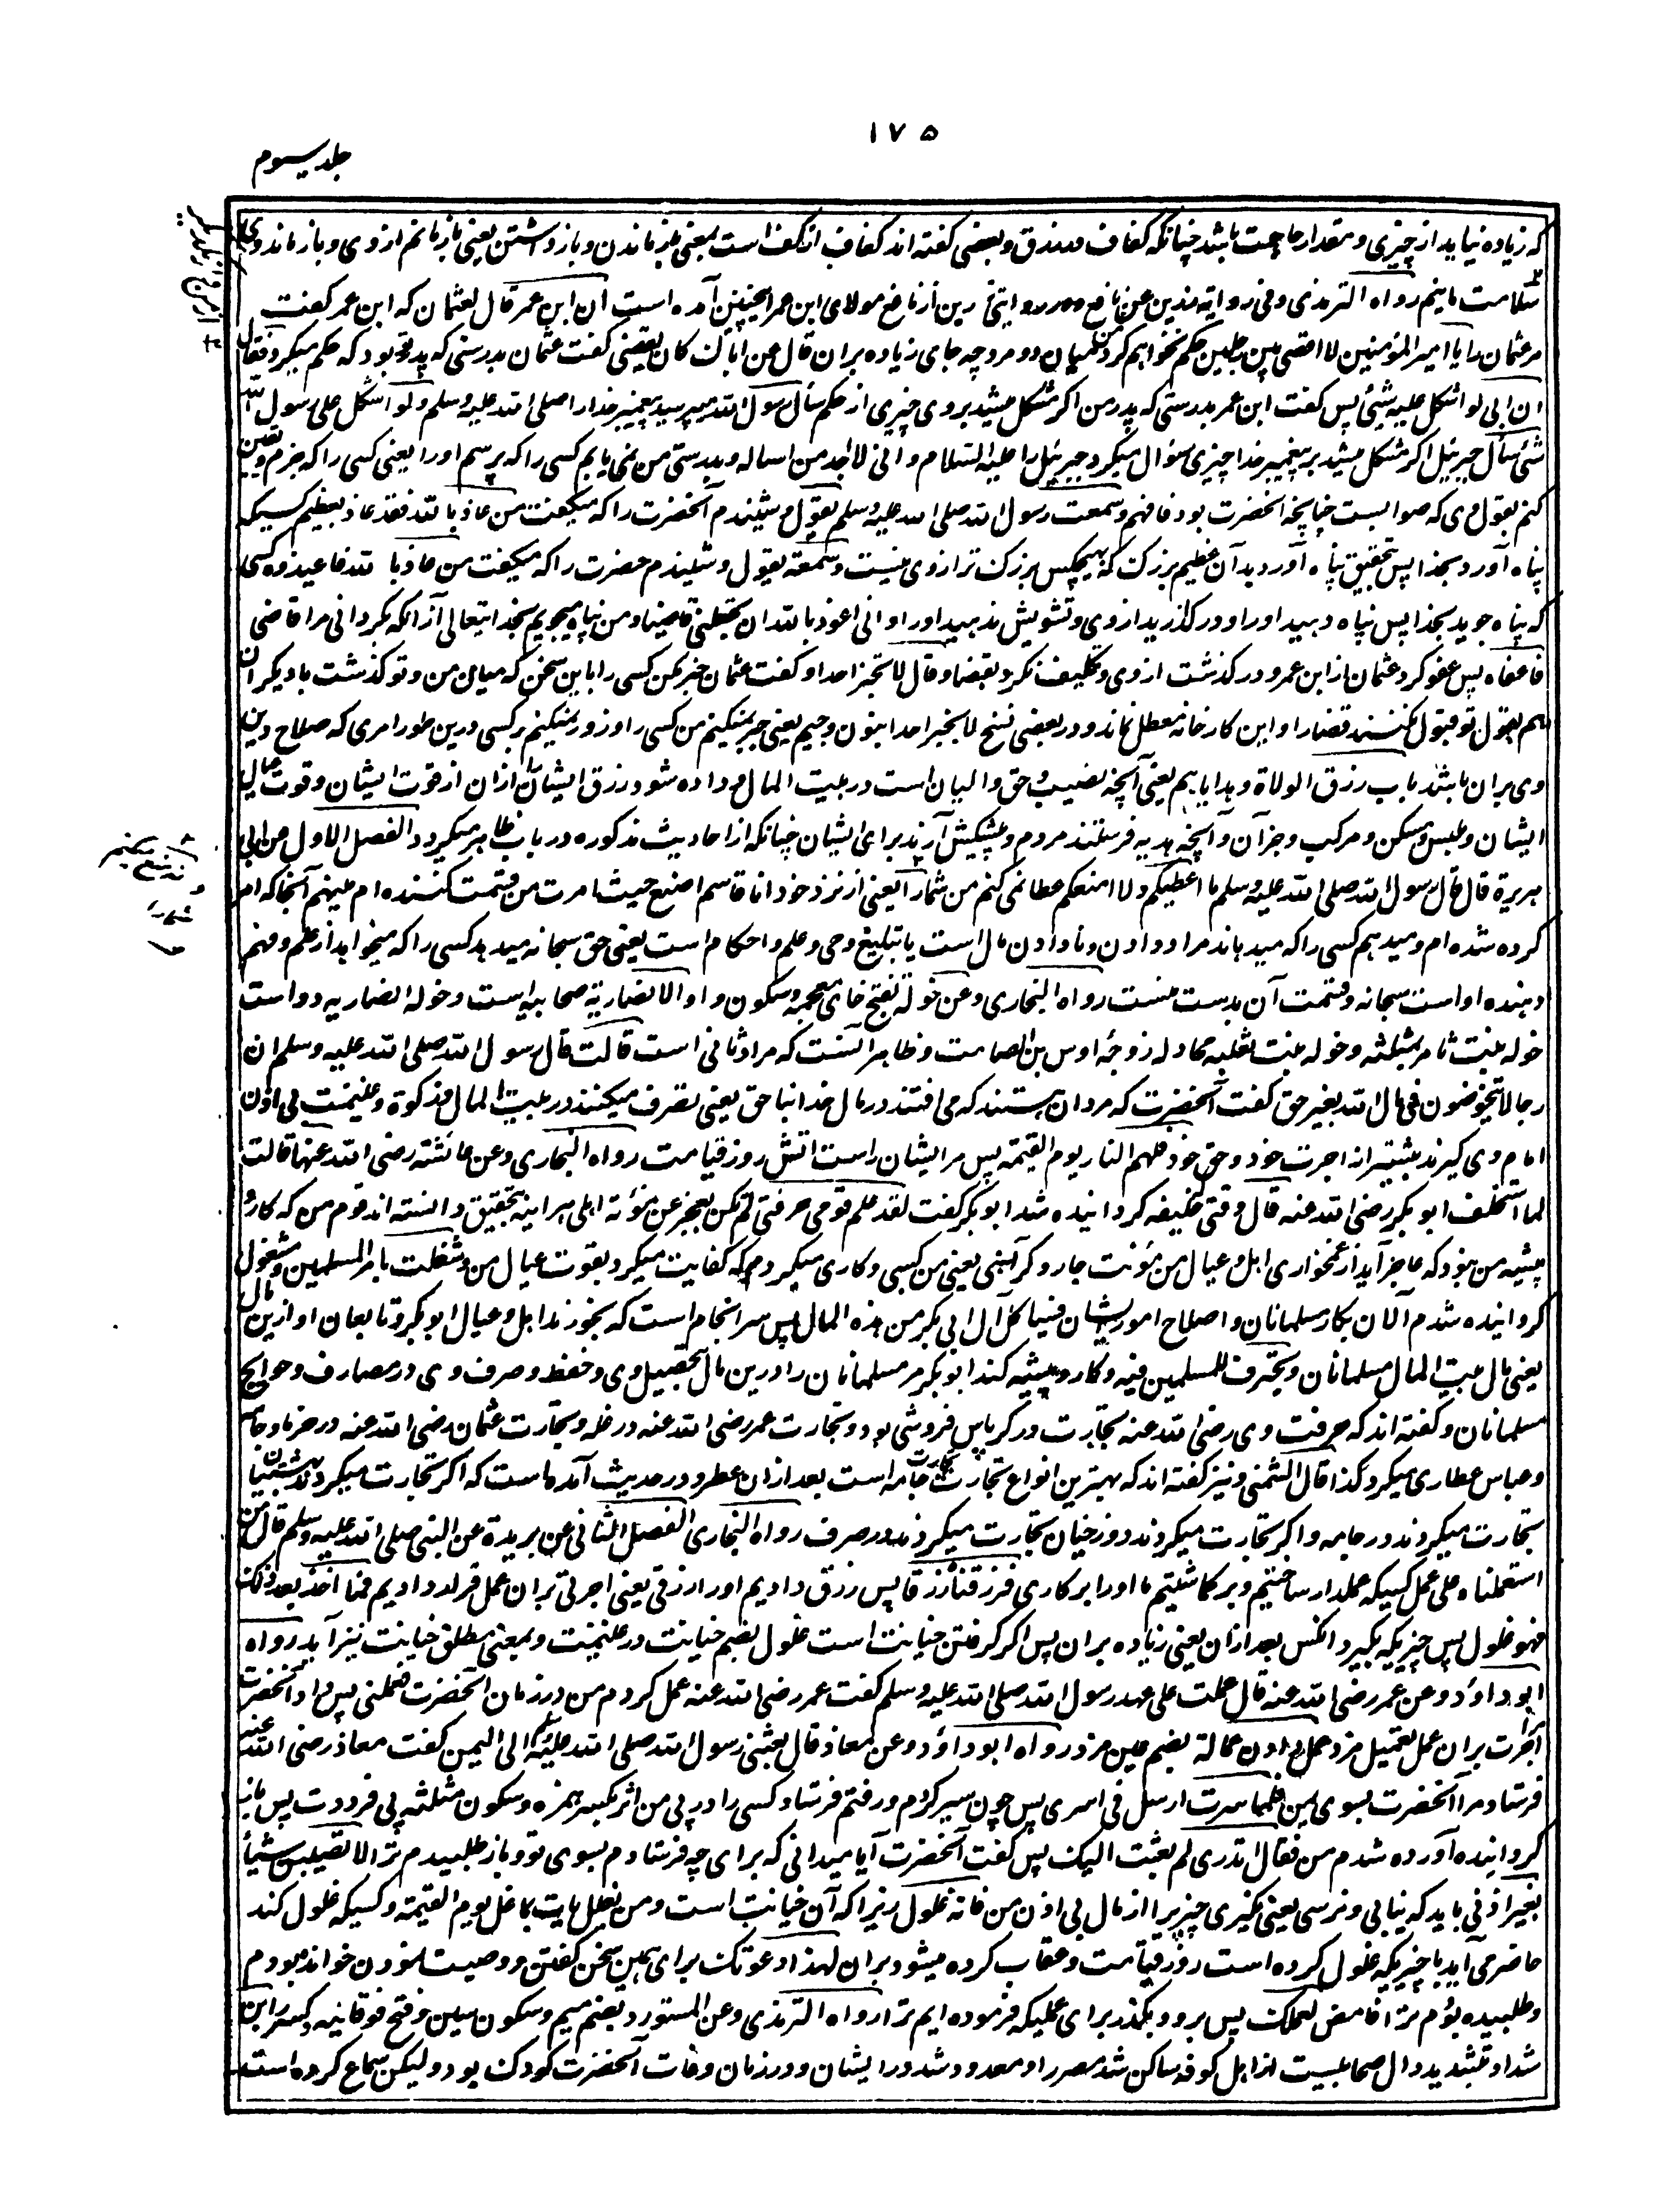 ۱۷۵
جلد سیوم
که زیاده نیاید از چیزی و مقدار حاجت باشد چنانکه کفاف در رزق و بعضی گفته اند کفاف از کف است بمعنی باز ماندن و باز داشتن یعنی باز مانم از وی و باز ماند وی
سلامت مانیم رواه الترمذی وفی روایة رزین عن نافع و در روایتی رزین از نافع مولای ابن عمر اینچنین آمده است ان ابن عمر قال لعثمان که ابن عمر گفت
مر عثمان را یا امیر المؤمنین لا اقضی بین رجلین حکم نخواهم کرد میان دو مرد چه جای زیاده بران قال عن اباک کان یقضی گفت عثمان بدرستی که پدر تو بود که حکم میکرد فقال
ان ابی لو اشکل علیه شیٔ پس گفت ابن عمر بدرستی که پدر من اگر مشکل میشد بروی چیزی از حکم سأل رسول الله میپرسید پیغمبر خدا را صلی الله علیه وسلم ولو اشکل علی رسول الله
شیٔ سأل جبرئیل اگر مشکل میشد بر پیغمبر خدا چیزی سؤال میکرد جبرئیل را علیه السلام وانی لا اجد من اساله و بدرستی من نمی یابم کسی را که پرسم او را یعنی کسی را که جزم و یقین
کنم بقول وی که صوابست چنانچه آنحضرت بود فافهم وسمعت رسول الله صلی الله علیه وسلم یقول و شنیدم آنحضرت را که میگفت من عاذ بالله فقد عاذ بعظیم کسیکه
پناه آورد بخدا پس بتحقیق پناه آورد بدان عظیم بزرگ که هیچکس بزرگ تر از وی نیست وسمعته یقول و شنیدم حضرت را که میگفت من عاذ بالله فاعیذوه کسی
که پناه جوید بخدا پس پناه دهید او را و درگذرید از وی و تشویش ندهید او را وانی اعوذ بالله ان تجعلنی قاضیا و من پناه میجویم بخدایتعالی از آنکه گردانی مرا قاضی
فاعفاه پس عفو کرد عثمان از ابن عمر و در گذشت از وی و تکلیف نکرد بقضا وقال لا تخبر احدا و گفت عثمان خبر مکن کسی را باین سخن که میان من و تو گذشت تا دیگران
هم بقول تو قبول نکنند قضا را و این کارخانه معطل نماند و در بعضی نسخ لا نجبر احدا بنون و جیم یعنی جبر نمیکنم من کسی را و زور نمیکنم بر کسی درین طور امری که صلاح دین
وی بران باشد باب رزق الولاة وهدایاهم یعنی آنچه نصیب و حق والیان است در بیت المال و داده شود رزق ایشان را ازان از قوت ایشان و قوت عیال
ایشان و ملبس و مسکن و مرکب و جز آن و آنچه هدیه فرستند مردم و پیشکش آرند برای ایشان چنانکه از احادیث مذکوره در باب ظاهر میگردد الفصل الاول عن ابی
هریرة قال قال رسول الله صلی الله علیه وسلم ما اعطیکم ولا امنعکم عطا نمی کنم من شما را یعنی از نزد خود انا قاسم اضع حیث امرت من قسمت کننده ام مینهم آنجا که امر
کرده شده ام و میدهم کسی را که میدهاند مراد دادن و نادادن مال است یا تبلیغ وحی و علم و احکام است یعنی حق سبحانه میدهد کسی را که میخواهد از علم و فهم
دهنده او است سبحانه و قسمت آن بدست منست رواه البخاری وعن خولة بفتح خای معجمه و سکون واو الانصاریة صحابیه است و خوله انصاریه دو است
خوله بنت ثامر بمثلثه و خوله بنت ثعلبه مجادله زوجهٔ اوس بن الصامت و ظاهر آنست که مراد ثانی است قالت قال رسول الله صلی الله علیه وسلم ان
رجالا یتخوضون فی مال الله بغیر حق گفت آنحضرت که مردان هستند که می افتند در مال خدا بناحق یعنی تصرف میکنند در بیت المال و زکوة و غنیمت بی اذن
امام و می گیرند بیشتر از اجرت خود و حق خود فلهم النار یوم القیمة پس مر ایشان راست آتش روز قیامت رواه البخاری وعن عائشه رضی الله عنها قالت
لما استخلف ابو بکر رضی الله عنه قال وقتی خلیفه گردانیده شد ابو بکر گفت لقد علم قومی ان حرفتی لم تکن تعجز عن مؤنة اهلی هر اینه بتحقیق دانسته اند قوم من که کار و
پیشه من نبود که عاجز آید از غمخواری اهل و عیال من مؤنت یعنی من کسبی و کاری میکردم که کفایت میکرد بقوت عیال من وشغلت بامر المسلمین و مشغول
گردانیده شدم الان بکار مسلمانان و اصلاح امور ایشان فسیاکل آل ابی بکر من هذه المال پس سرانجام است که بخورند اهل و عیال ابو بکر و تابعان او ازین مال
یعنی مال بیت المال مسلمانان ویحترف للمسلمین فیه و کار و پیشه کند ابو بکر مر مسلمانان را درین مال بتحصیل وی و حفظ و صرف وی در مصارف و حوایج
مسلمانان و گفته اند که حرفت وی رضی الله عنه تجارت در کرباس فروشی بود و تجارت عمر رضی الله عنه در غله و تجارت عثمان رضی الله عنه در خرما و جامه
و عباس عطاری میکرد کذا قال الشمنی و نیز گفته اند که بهترین انواع تجارت تجارت جامه است بعد ازان عطر و در حدیث آمده است که اگر تجارت میکردند بهشتیان
تجارت میکردند در جامه و اگر تجارت میکردند دوزخیان تجارت میکردند در صرف رواه البخاری الفصل الثانی عن بریدة عن النبی صلی الله علیه وسلم قال من
استعملناه علی عمل کسیکه عملدار ساختیم و برگماشتیم ما او را بر کاری فرزقناه رزقا پس رزق دادیم او را رزقی یعنی اجرتی بران عمل قرار دادیم فما اخذ بعد ذلک
فهو غلول پس چیزیکه بگیرد آنکس بعد ازان یعنی زیاده بران پس اگر گرفتن خیانت است غلول بضم خیانت در غنیمت و بمعنی مطلق خیانت نیز آید رواه
ابو داؤد وعن عمر رضی الله عنه قال عملت علی عهد رسول الله صلی الله علیه وسلم گفت عمر رضی الله عنه عمل کردم من در زمان آنحضرت فعملنی پس داد آنحضرت
اجرت بران عمل تعمیل مزد عمل دادن عمالة بضم عین مزد رواه ابو داؤد وعن معاذ قال بعثنی رسول الله صلی الله علیه وسلم الی الیمن گفت معاذ رضی الله عنه
فرستاد مرا آنحضرت بسوی یمن فلما سرت ارسل فی اثری پس چون سیر کردم و رفتم فرستاد کسی را در پی من اثر بکسر همزه و سکون مثلثه پی فرددت پس باز
گردانیده آورده شدم من فقال اتدری لم بعثت الیک پس گفت آنحضرت آیا میدانی که برای چه فرستادم بسوی تو و باز طلبیدم ترا لا تصیبن شیأ
بغیر اذنی باید که نیابی و نرسی یعنی نگیری چیزیرا از مال بی اذن من فانه غلول زیرا که آن خیانت است ومن یغلل یأت بما غل یوم القیمة و کسیکه غلول کند
حاضر می آید با چیزیکه غلول کرده است روز قیامت و عقاب کرده میشود بران لهذا دعوتک برای همین سخن گفتن و وصیت نمودن خوانده بودم
و طلبیده بودم ترا فامض لعملک پس برو و بگذر برای عملیکه فرموده ایم ترا رواه الترمذی وعن المستورد بضم میم و سکون سین و فتح فوقانیه و کسر را بن
شداد بتشدید دال صحابیست از اهل کوفه ساکن شد مصر را و معدود شد در ایشان و در زمان وفات آنحضرت کودک بود و لیکن سماع کرده است